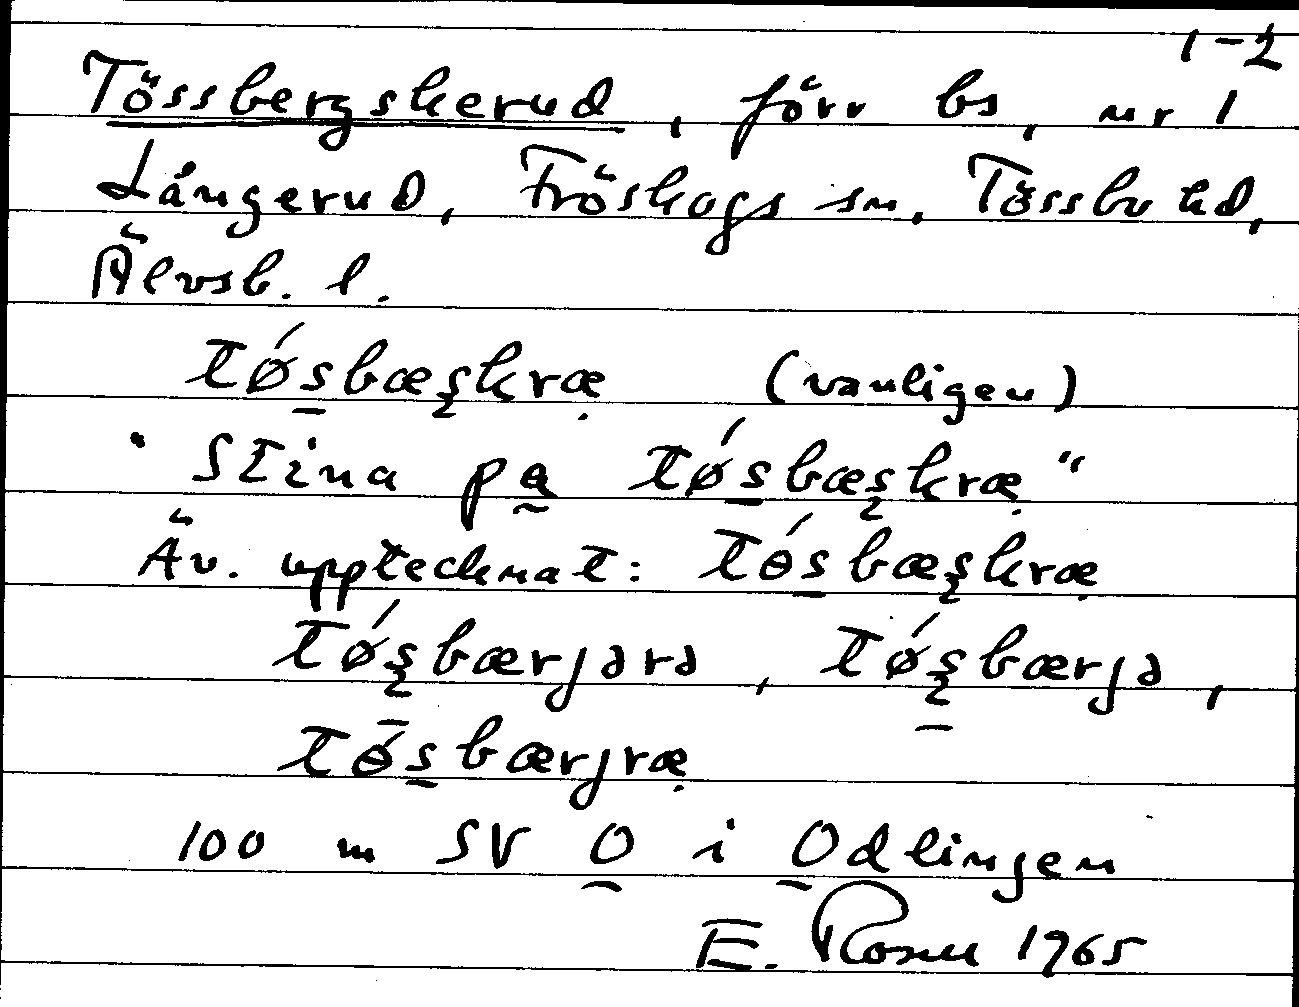 1-2
Tössbergskerud, förr bs, nr 1
Långerud, Fröskogs sn, Tössbo hd,
Älvsb. l.
tǿsbæşkræ (vanligen)
"Stina pa tǿsbæşkræ"
Äv. upptecknat: tɵ́sbæşkræ
tǿşbærjərə, tǿşbærjə,
tɵ̄́sbærjræ
100 m SV O i Odlingen
E. Rosell 1965